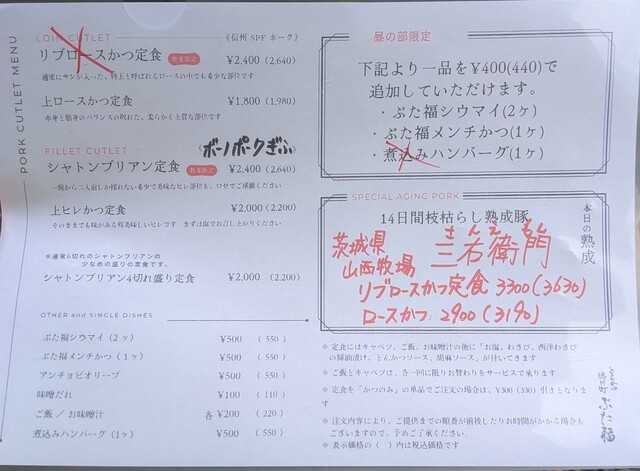 PORK CUTLET MENU
LOIN CUTLET 《信州 SPF ポーク》
リブロースかつ定食 数量限定 ¥2,400 (2,640)
適度にサシが入った、極上と呼ばれるロースの中でも希少な部位です
上ロースかつ定食 ¥1,800 (1,980)
赤身と脂身のバランスの取れた、柔らかく上質な部位です
FILLET CUTLET 《ボーノポークぎふ》
シャトンブリアン定食 数量限定 ¥2,400 (2,640)
一頭から二人前しか採れない希少で美味なヒレ部位を、ロゼでご堪能ください
上ヒレかつ定食 ¥2,000 (2,200)
そのままでも味がある程美味しいヒレです まずは塩でお召し上がりください
※通常6切れのシャトンブリアンの
少なめの盛りの定食です。
シャトンブリアン4切れ盛り定食 ¥2,000 (2,200)
OTHER and SINGLE DISHES
ぶた福シウマイ(2ヶ) ¥500 (550)
ぶた福メンチかつ(1ヶ) ¥500 (550)
アンチョビオリーブ ¥500 (550)
味噌だれ ¥100 (110)
ご飯/お味噌汁 各 ¥200 (220)
煮込みハンバーグ(1ヶ) ¥500 (550)
昼の部限定
下記より一品を¥400(440)で
追加していただけます。
・ぶた福シウマイ(2ヶ)
・ぶた福メンチかつ(1ヶ)
・煮込みハンバーグ(1ヶ)
SPECIAL AGING PORK
本日の熟成
14日間枝枯らし熟成豚
茨城県
山西牧場
さんえもん
三右衛門
リブロースかつ定食 3300(3630)
ロースかつ 2900(3190)
※ 定食にはキャベツ、ご飯、お味噌汁の他に「お塩、わさび、西洋わさび
の醤油漬け、とんかつソース、胡麻ソース」が付いてきます
※ ご飯とキャベツは、各一回に限りお替わりをサービスで承ります。
※ 定食を「かつのみ」の単品でご注文の場合は、¥300 (330) 引きとなりま
す
※ 注文内容により、ご提供までの順番が前後したりお時間がかかる場合も
ございますので、予めご了承ください
※ 表示価格の( )内は税込価格です
とんかつ
ぶた福